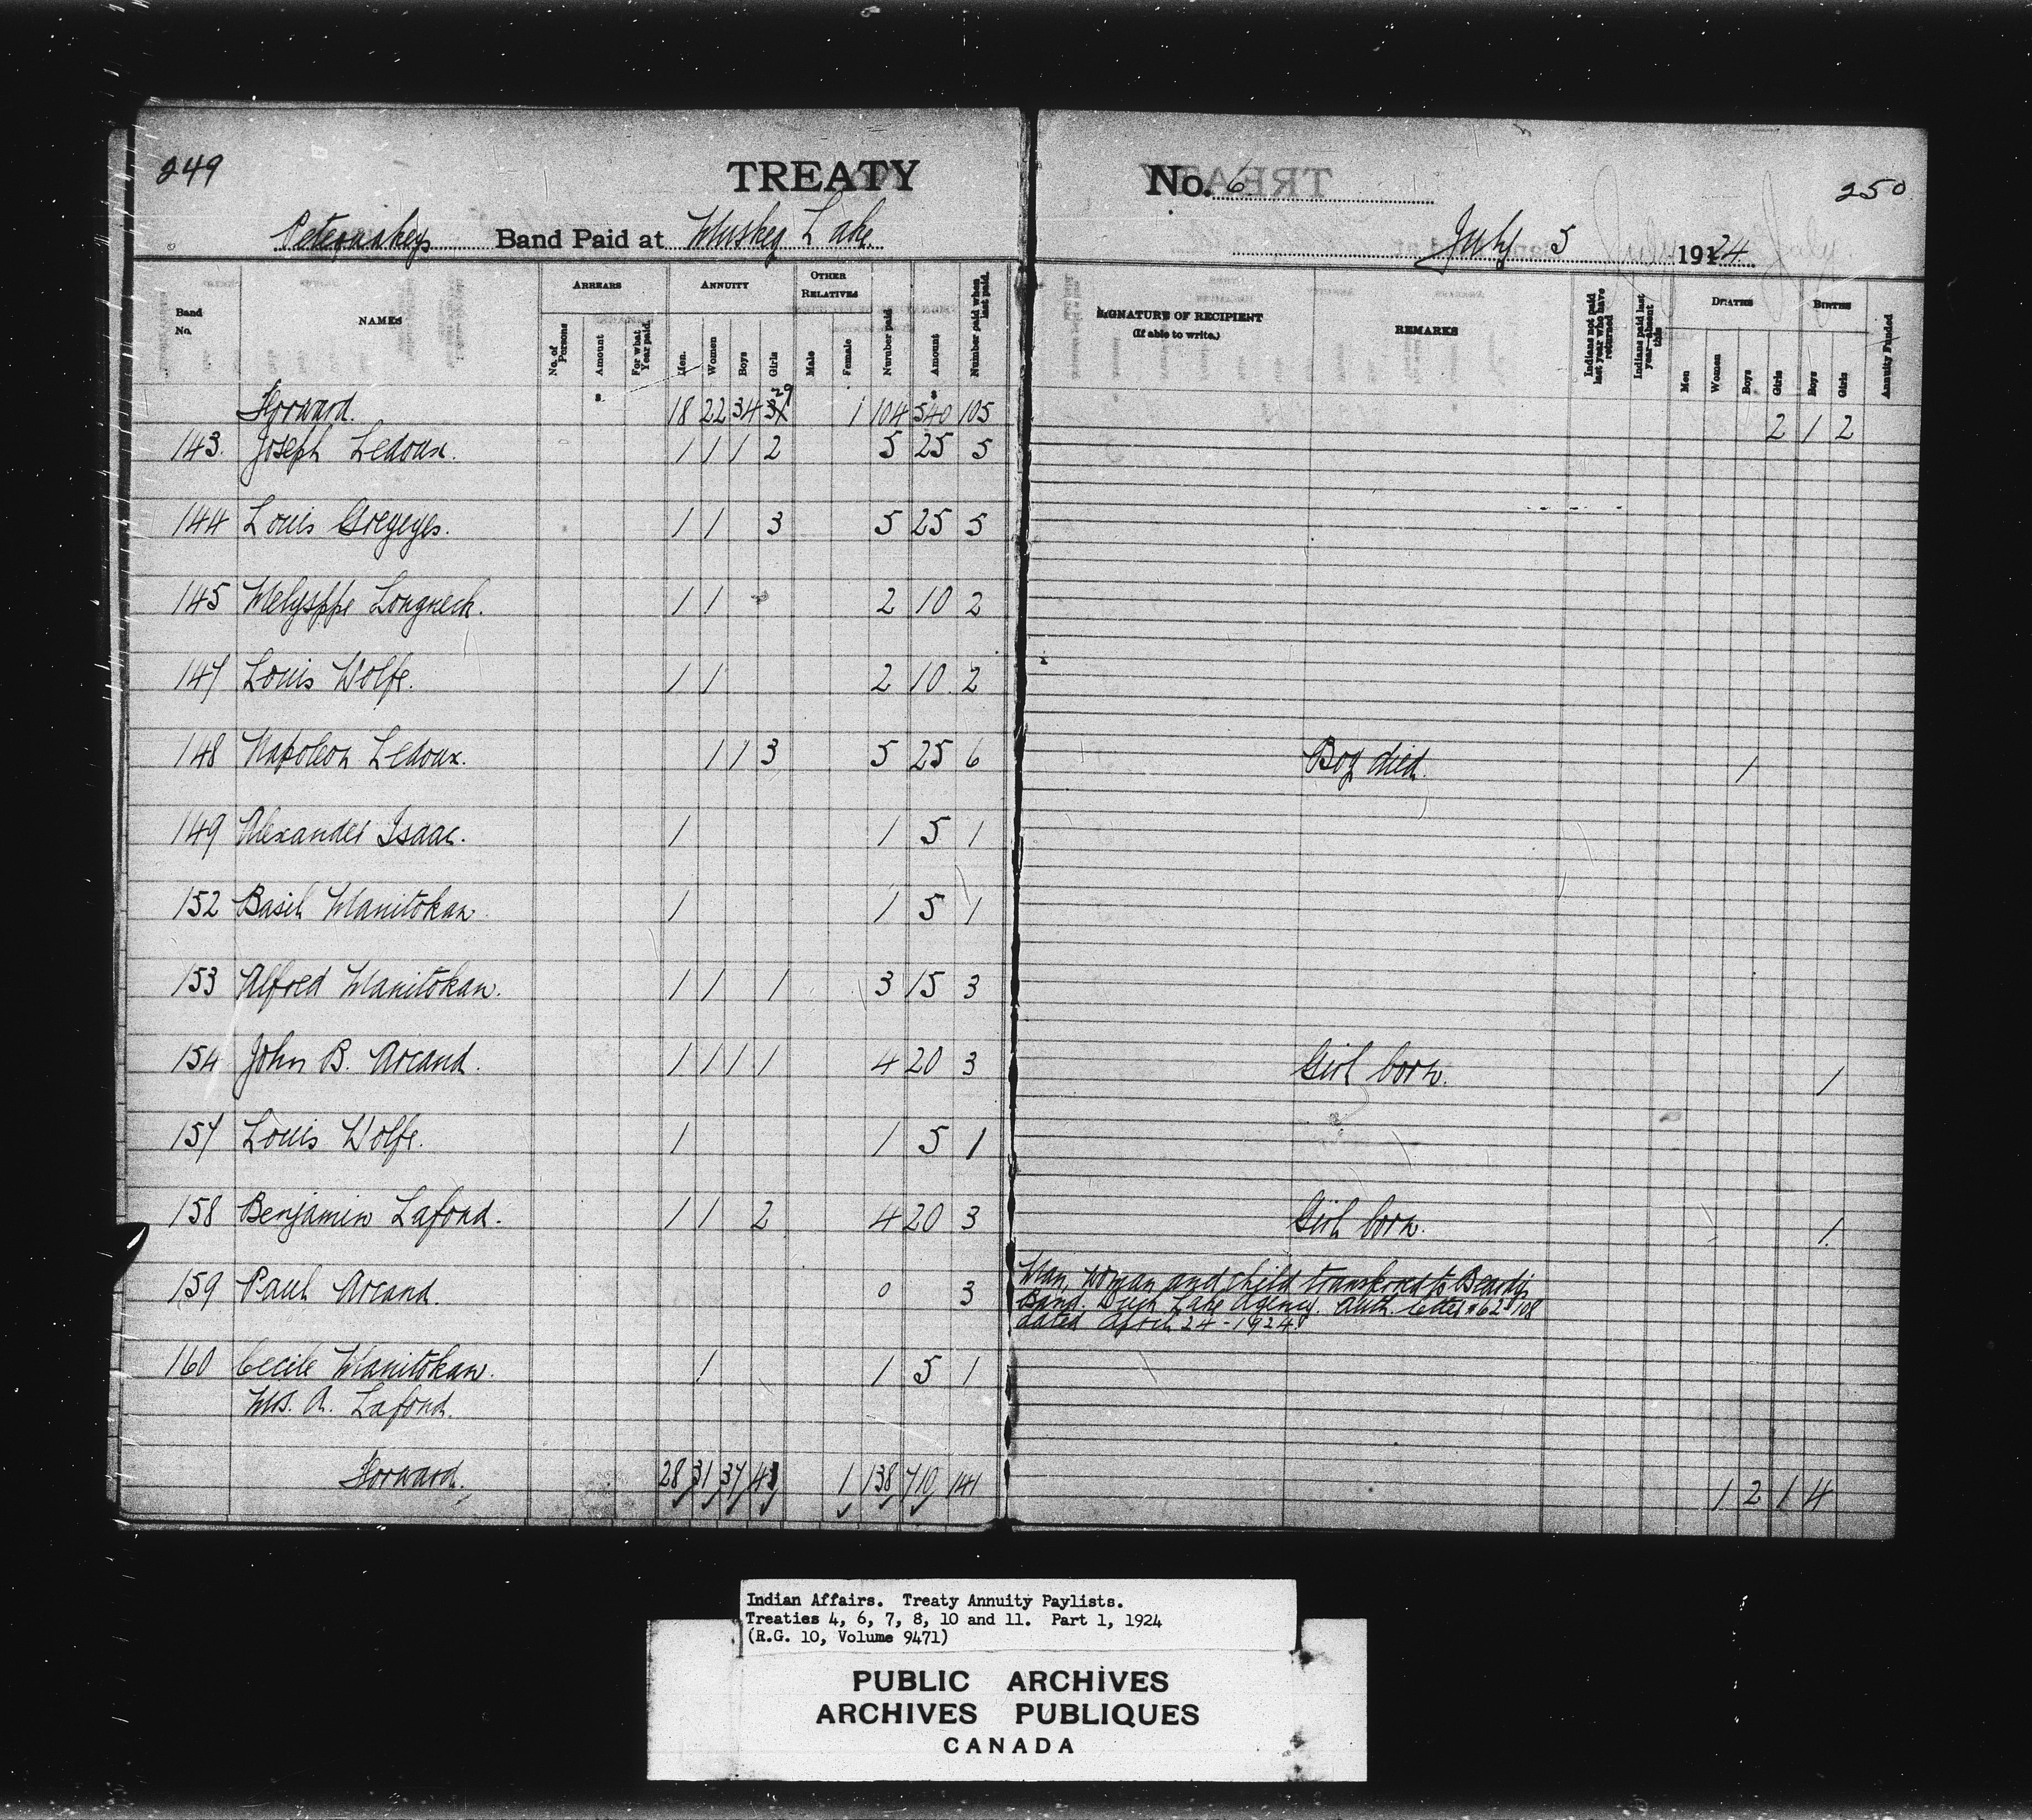 249
TREATY
No. 6
250
Petequakeys Band Paid at Muskeg Lake
July 5 1924
Band No.
NAMES
ARREARS
No. of Persons
Amount
For what Year paid.
ANNUITY
Men.
Women
Boys
Girls
OTHER RELATIVES
Male
Female
Number paid
Amount
Number paid when last paid.
SIGNATURE OF RECIPIENT
(If able to write.)
REMARKS
Indians not paid last year who have returned
Indians paid last year—absent this
DEATHS
Men
Women
Boys
Girls
BIRTHS
Boys
Girls
Annuity Funded
Forward. 18 22 34 29 1 104 540 105 2 1 2
143 Joseph Ledoux. 1 1 1 2 5 25 5
144 Louis Greyeyes. 1 1 3 5 25 5
145 Melysppe Longneck. 1 1 2 10 2
147 Louis Wolfe. 1 1 2 10 2
148 Napoleon Ledoux. 1 1 3 5 25 6 Boy died. 1
149 Alexander Isaac. 1 1 5 1
152 Basil Manitokan 1 1 5 1
153 Alfred Manitokan. 1 1 1 3 15 3
154 John B. Arcand. 1 1 1 1 4 20 3 Girl born. 1
157 Louis Wolfe. 1 1 5 1
158 Benjamin Lafond. 1 1 2 4 20 3 Girl born. 1
159 Paul Arcand. 0 3 Man, woman and child transferred to Beardy's
Band, Duck Lake Agency. Auth. letter #62-108
dated April 24-1924
160 Cecile Manitokan. 1 1 5 1
Mrs. A. Lafond.
Forward. 28 31 37 41 1 138 710 141 1 2 1 4
Indian Affairs. Treaty Annuity Paylists.
Treaties 4, 6, 7, 8, 10 and 11. Part 1, 1924
(R.G. 10, Volume 9471)
PUBLIC ARCHIVES
ARCHIVES PUBLIQUES
CANADA